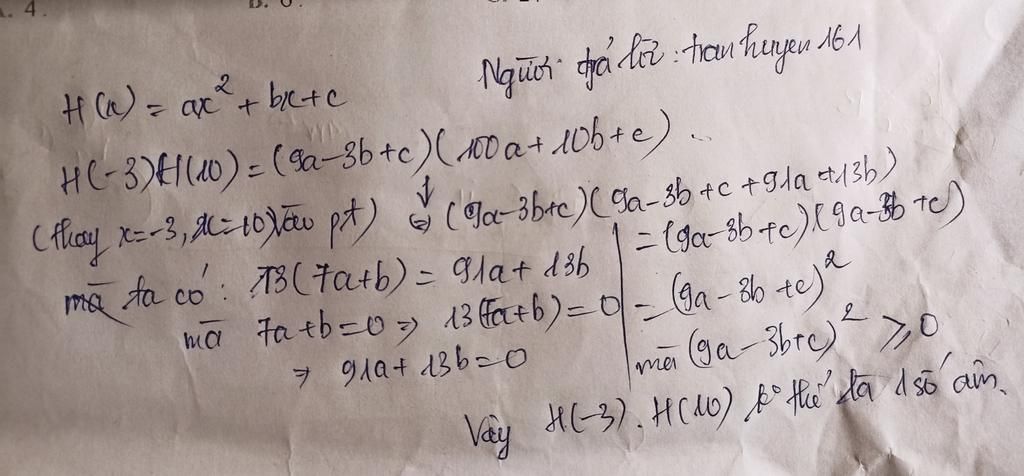 4.
Người trả lời: tranhuyen161
H(x) = ax² + bx + c
H(-3)H(10) = (9a-3b+c)(100a+10b+c)
(thay x=-3, x=10) vào pt) ↓ (9a-3b+c)(9a-3b+c+91a+13b)
mà ta có: 13(7a+b) = 91a+13b
mà 7a+b=0 ⇒ 13(7a+b)=0
⇒ 91a+13b=0
=(9a-3b+c)(9a-3b+c)
=(9a-3b+c)²
mà (9a-3b+c)² ⩾0
Vậy H(-3).H(10) k° thể là 1 số âm.